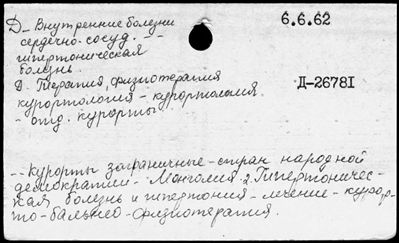 Д– Внутренние болезни
6.6.62
сердечно-сосуд. –
гипертоническая
болезнь.
Д. Терапия, физиотерапия
Д-26781
курортология – курортология
– отд. курорты.
-- курорты заграничные – стран народной
демократии – Монголия. 2. Гипертоничес-
кая болезнь и гипертония – лечение – курор-
то-бальнео-физиотерапия.